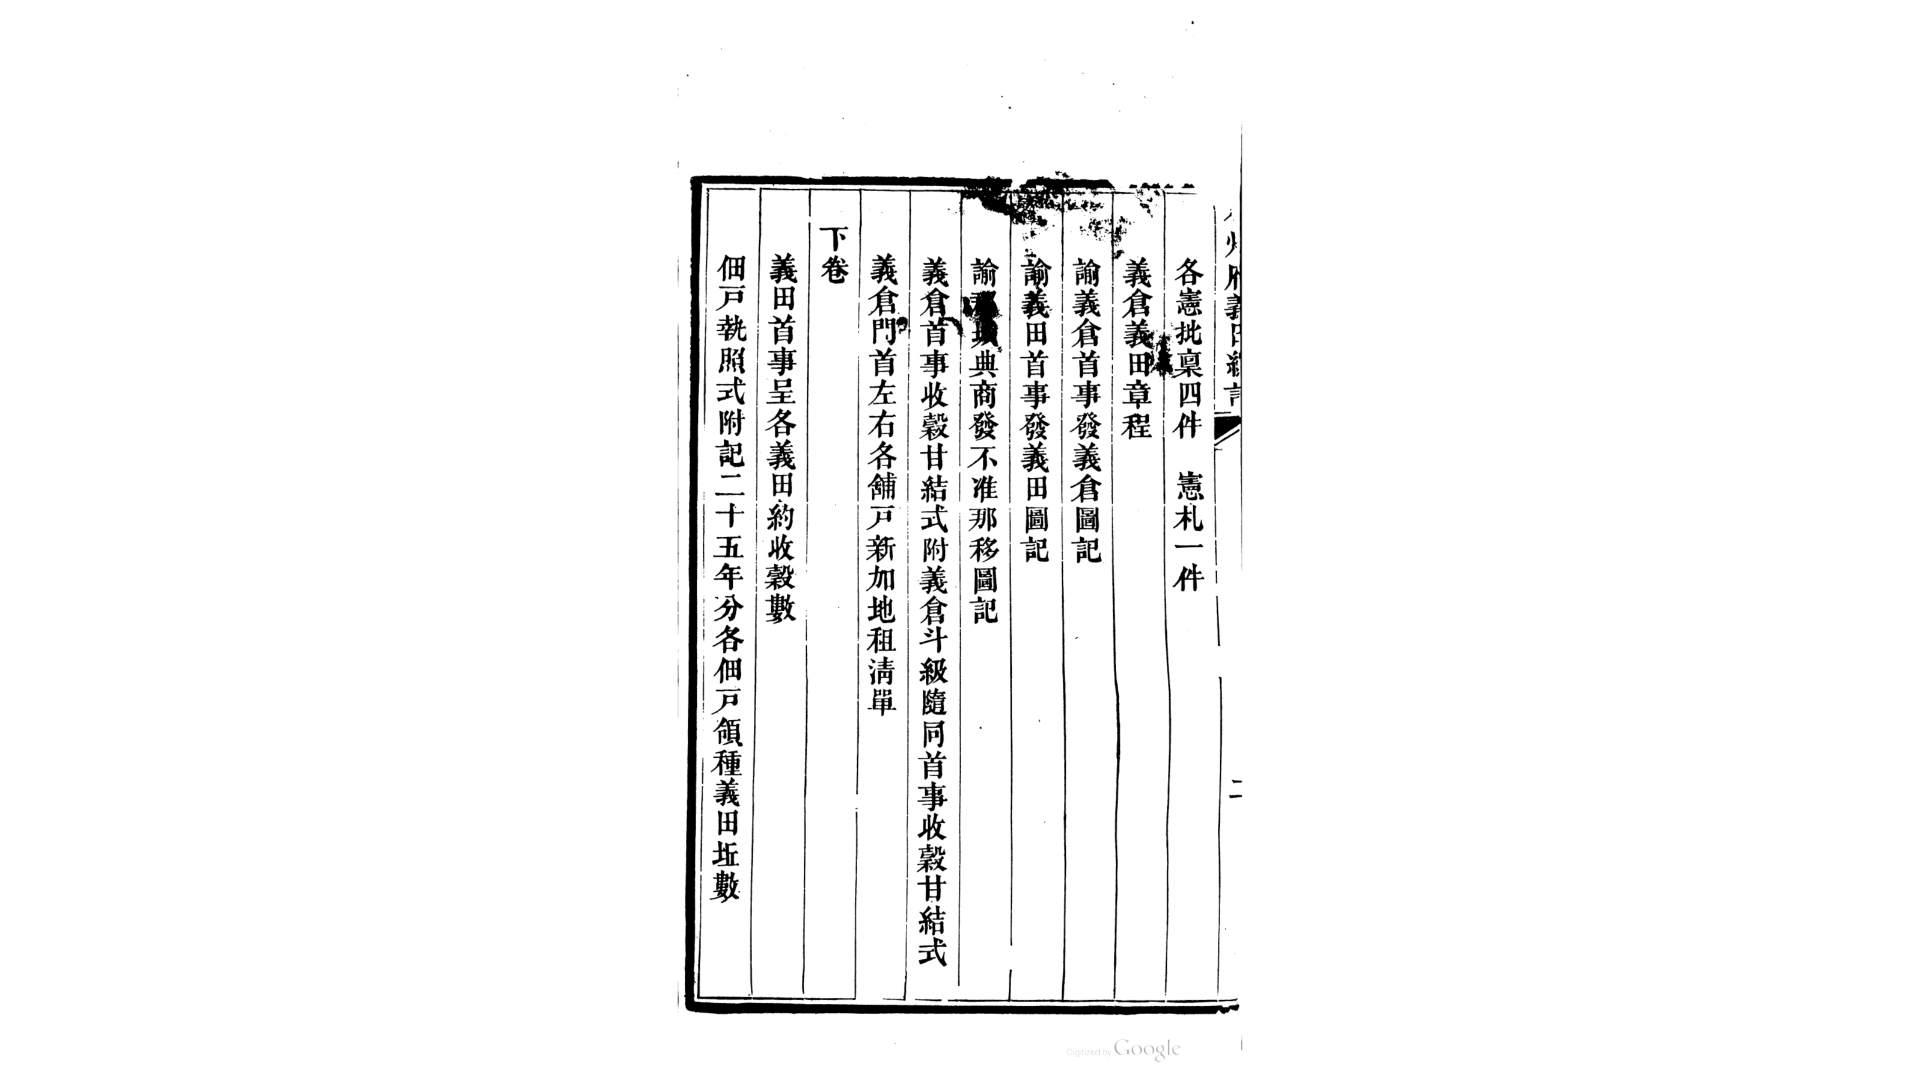 府義田
二
各憲批稟四件　憲札一件
義倉義田章程
諭義倉首事發義倉圖記
諭義田首事發義田圖記
諭城典商發不准那移圖記
義倉首事收穀甘結式附義倉斗級隨同首事收穀甘結式
義倉門首左右各舖戸新加地租淸單
下卷
義田首事呈各義田約收穀數
佃戸執照式附記二十五年分各佃戸領種義田坵數
Digitized by Google